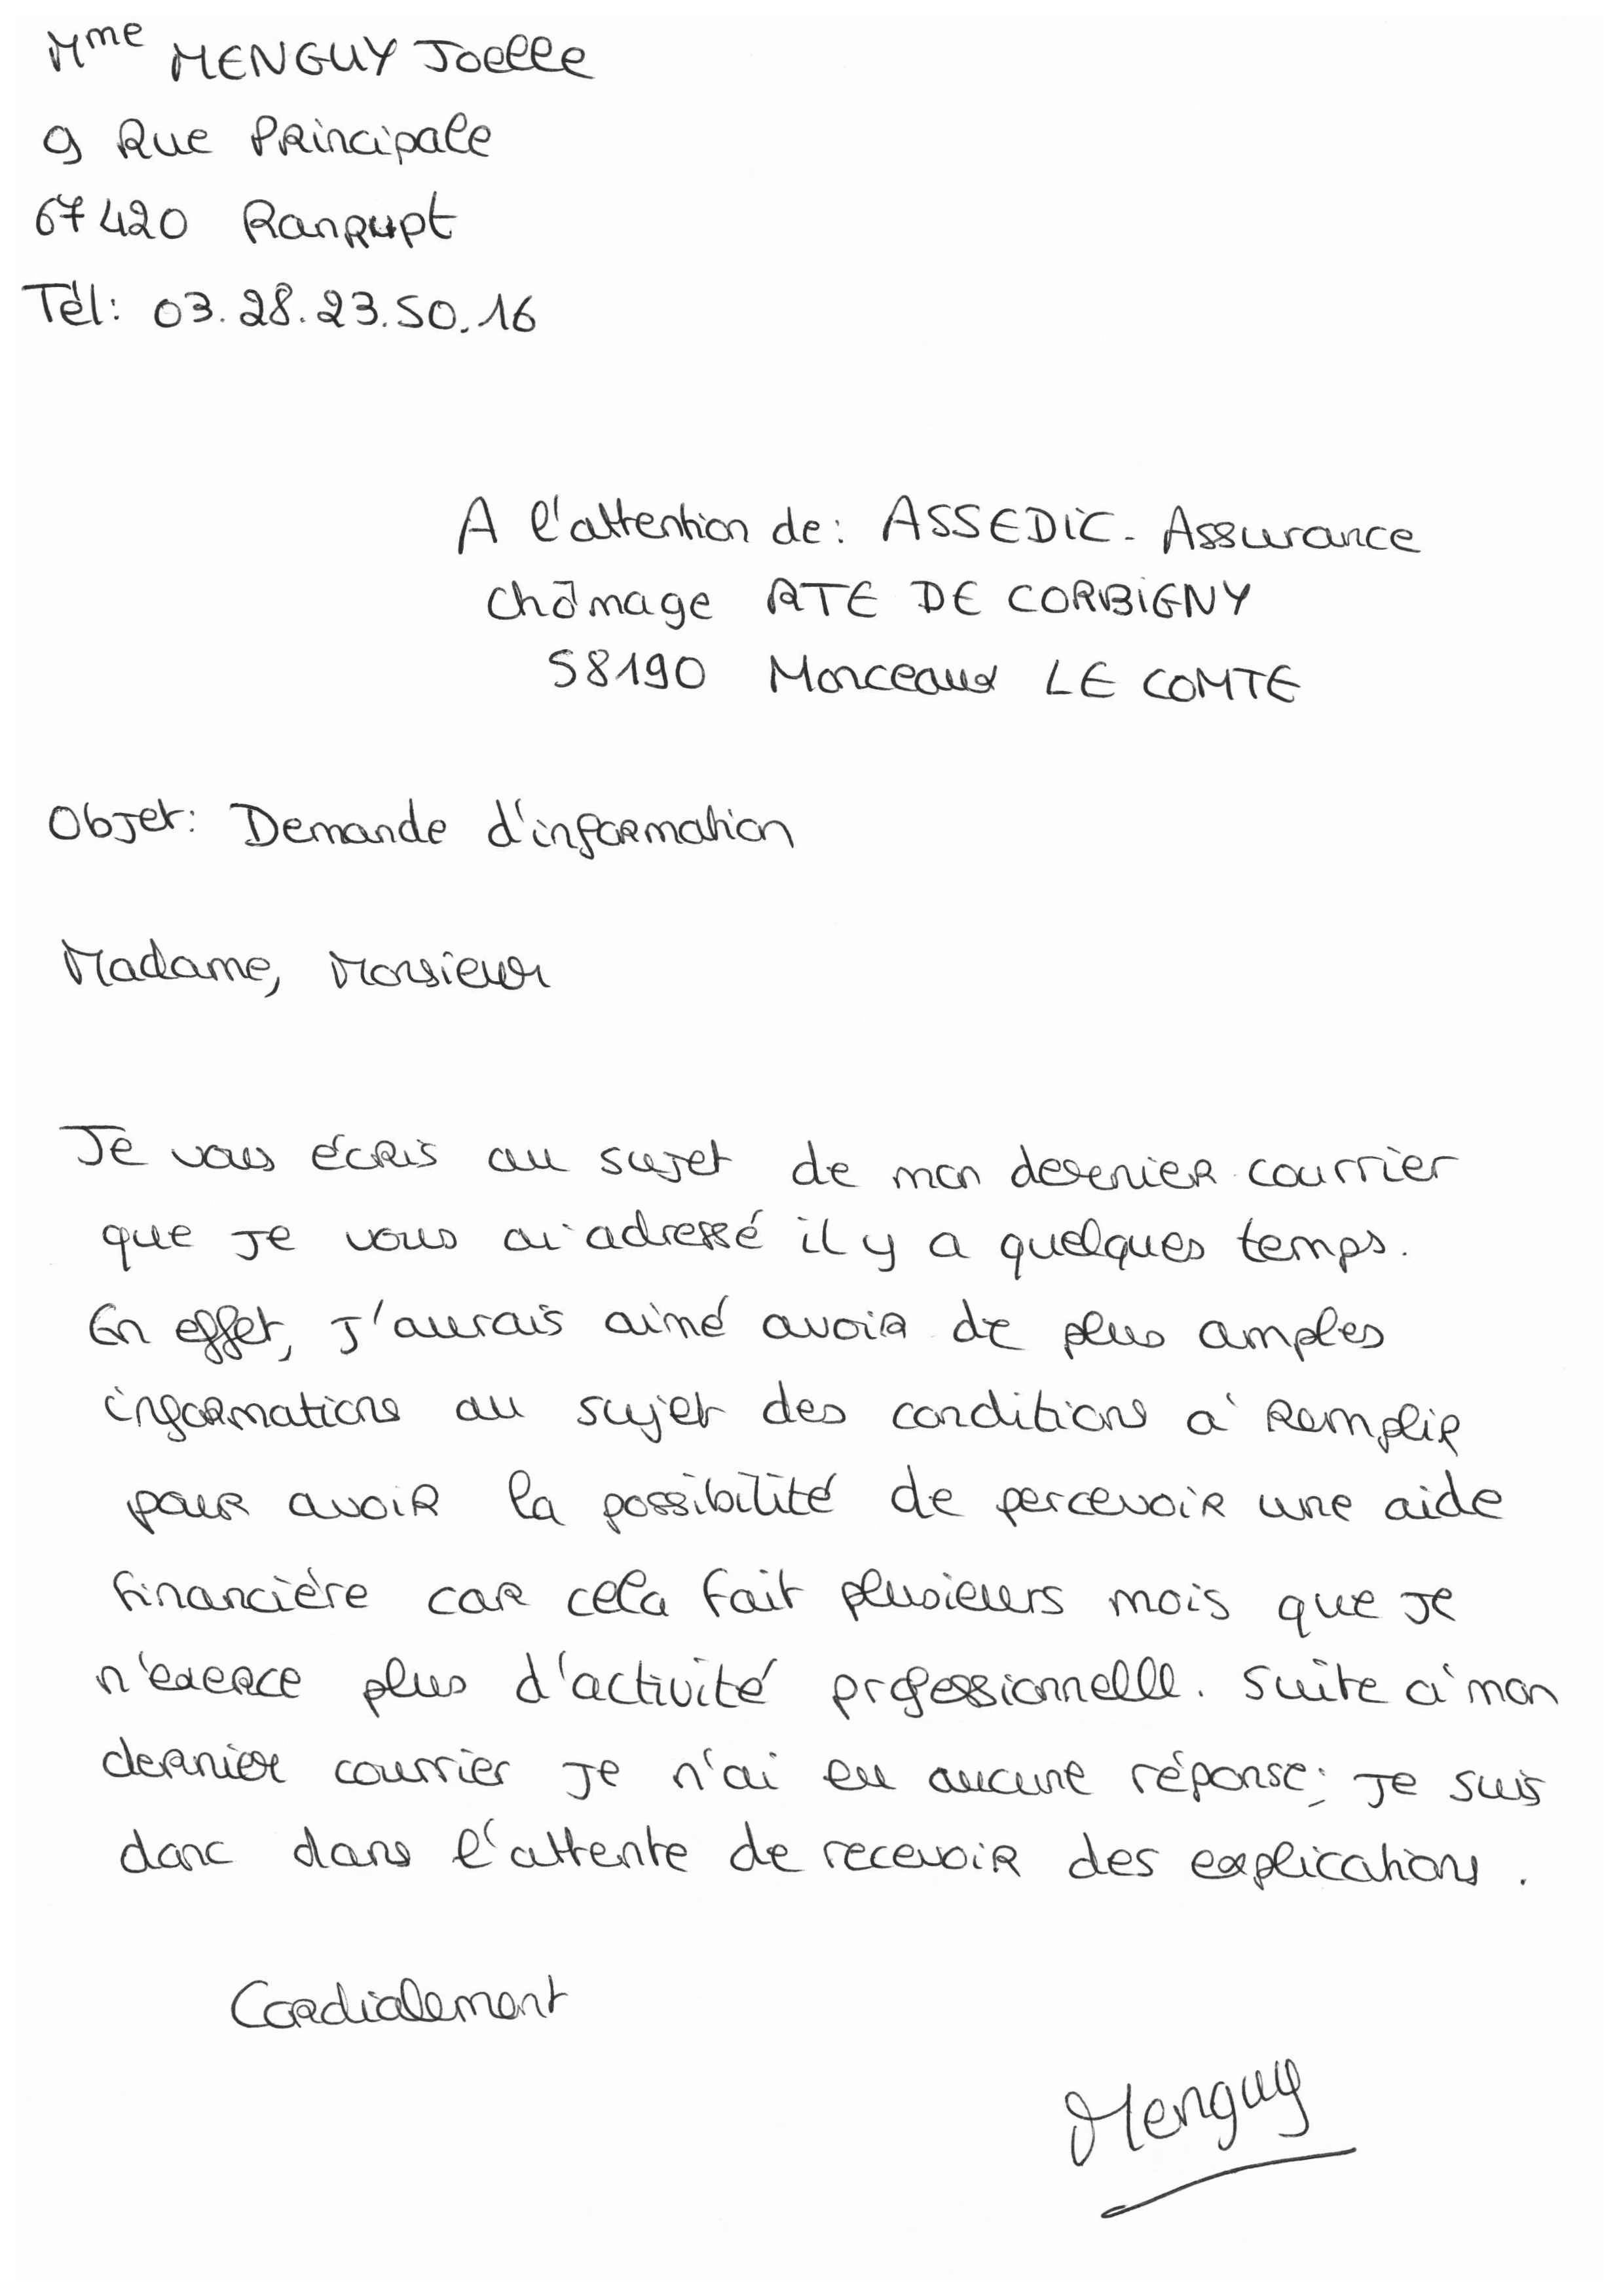 Mme MENGUY Joelle
9 Rue Principale
67420 Ranrupt
Tél: 03.28.23.50.16
A l'attention de: ASSEDIC. Assurance
chômage RTE DE CORBIGNY
58190 Monceaux LE COMTE
Objet: Demande d'information
Madame, Monsieur
Je vous écris au sujet de mon dernier courrier
que je vous ai adressé il y a quelques temps.
En effet, j'aurais aimé avoir de plus amples
informations au sujet des conditions à remplir
pour avoir la possibilité de percevoir une aide
financière car cela fait plusieurs mois que je
n'exerce plus d'activité professionnelle. Suite à mon
dernier courrier je n'ai eu aucune réponse; je suis
donc dans l'attente de recevoir des explications.
Cordialement
Menguy